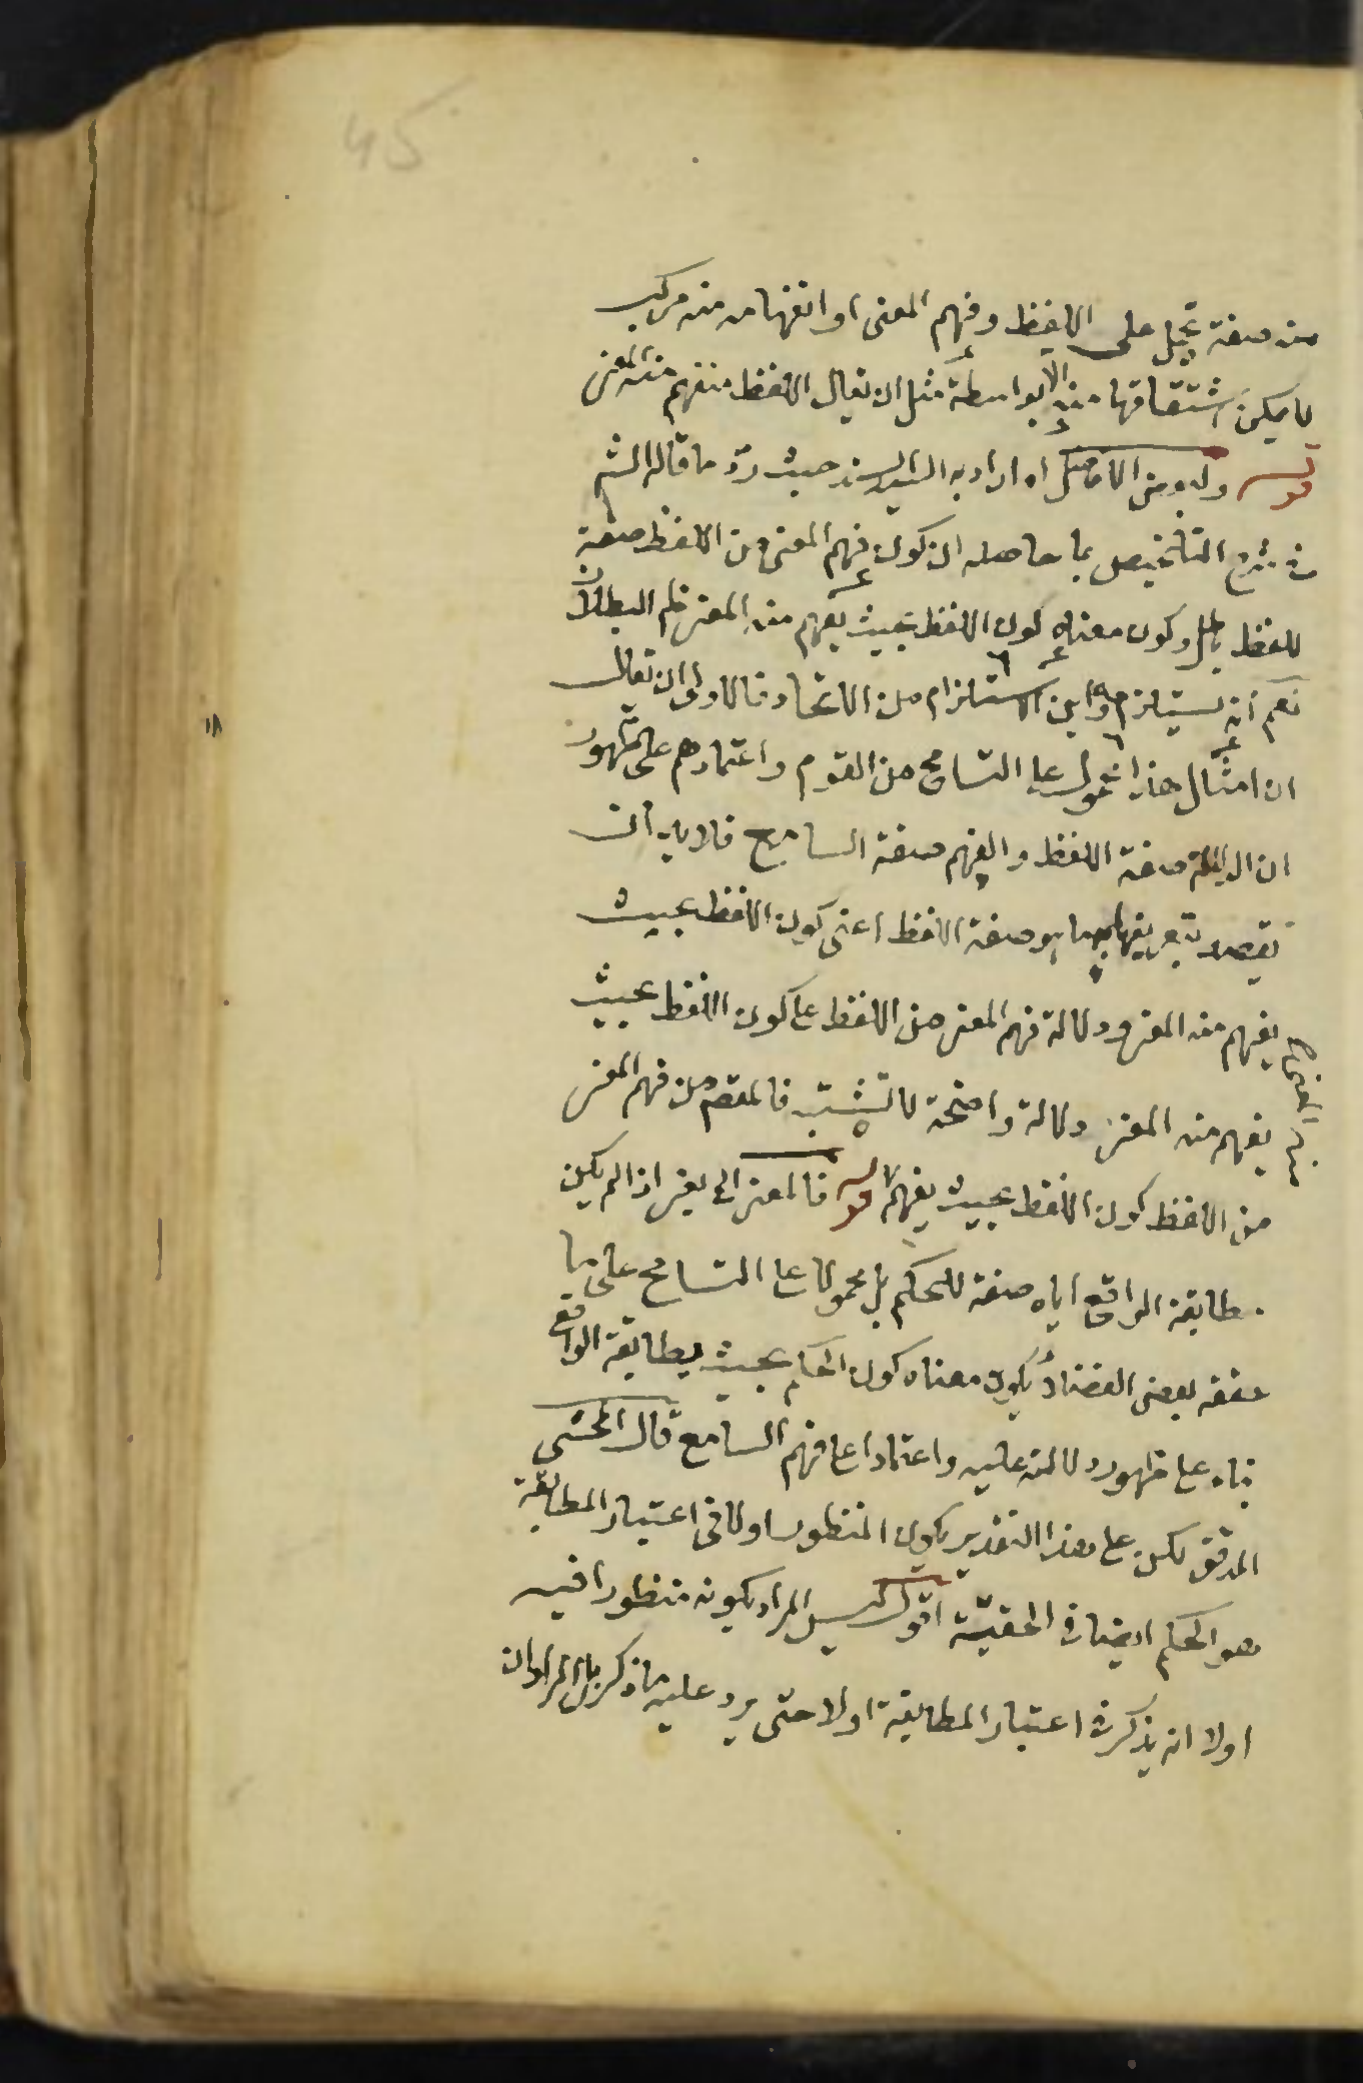 45
منه صفة تحمل على اللفظ وفهم المعنى او انفهامه منه مركب
لا يمكن اشتقاقها منه الا بواسطة مثل ان يقال اللفظ منفهم منه المعنى
قوله ولبعض الافاضل اه اراد به السيد السند حيث رد ما قاله الش
في شرح التلخيص بما حاصله ان كون فهم المعنى من اللفظ صفة
للفظ باطل وكون معناه كون اللفظ بحيث يفهم منه المعنى ظم البطلان
نعم انه يستلزم واين الاستلزام من الاتحاد فالاولى ان يقال
ان امثال هذا محمول على التسامح من القوم واعتمادهم على ظهور
ان الدلالة صفة اللفظ والفهم صفة السامع فلا بد ان
يقصد بتعريفها بما هو صفة اللفظ اعنى كون اللفظ بحيث
يفهم منه المعنى ودلالة فهم المعنى من اللفظ على كون اللفظ بحيث
يفهم منه المعنى دلالة واضحة لا تشتبه فالمقصم من فهم المعنى
من اللفظ كون اللفظ بحيث يفهم قوله فالمعنى الى يعنى اذا لم يكن
مطابقة الواقع اياه صفة للحكم بل محمولا على التسامح على ما
حققه بعض الفضلاء يكون معناه كون الحكم بحيث يطابقه الواقع
بناء على ظهور دلالته عليه واعتمادا على فهم السامع قال المحشى
المدقق لكن على هذا التقدير يكون المنظور اولا فى اعتبار المطابقة
هو الحكم ايضا فى الحقية اقول ليس المراد بكونه منظورا فيه
اولا انه يذكر فى اعتبار المطابقة اولا حتى يرد عليه ما ذكر بل المراد ان
١٨